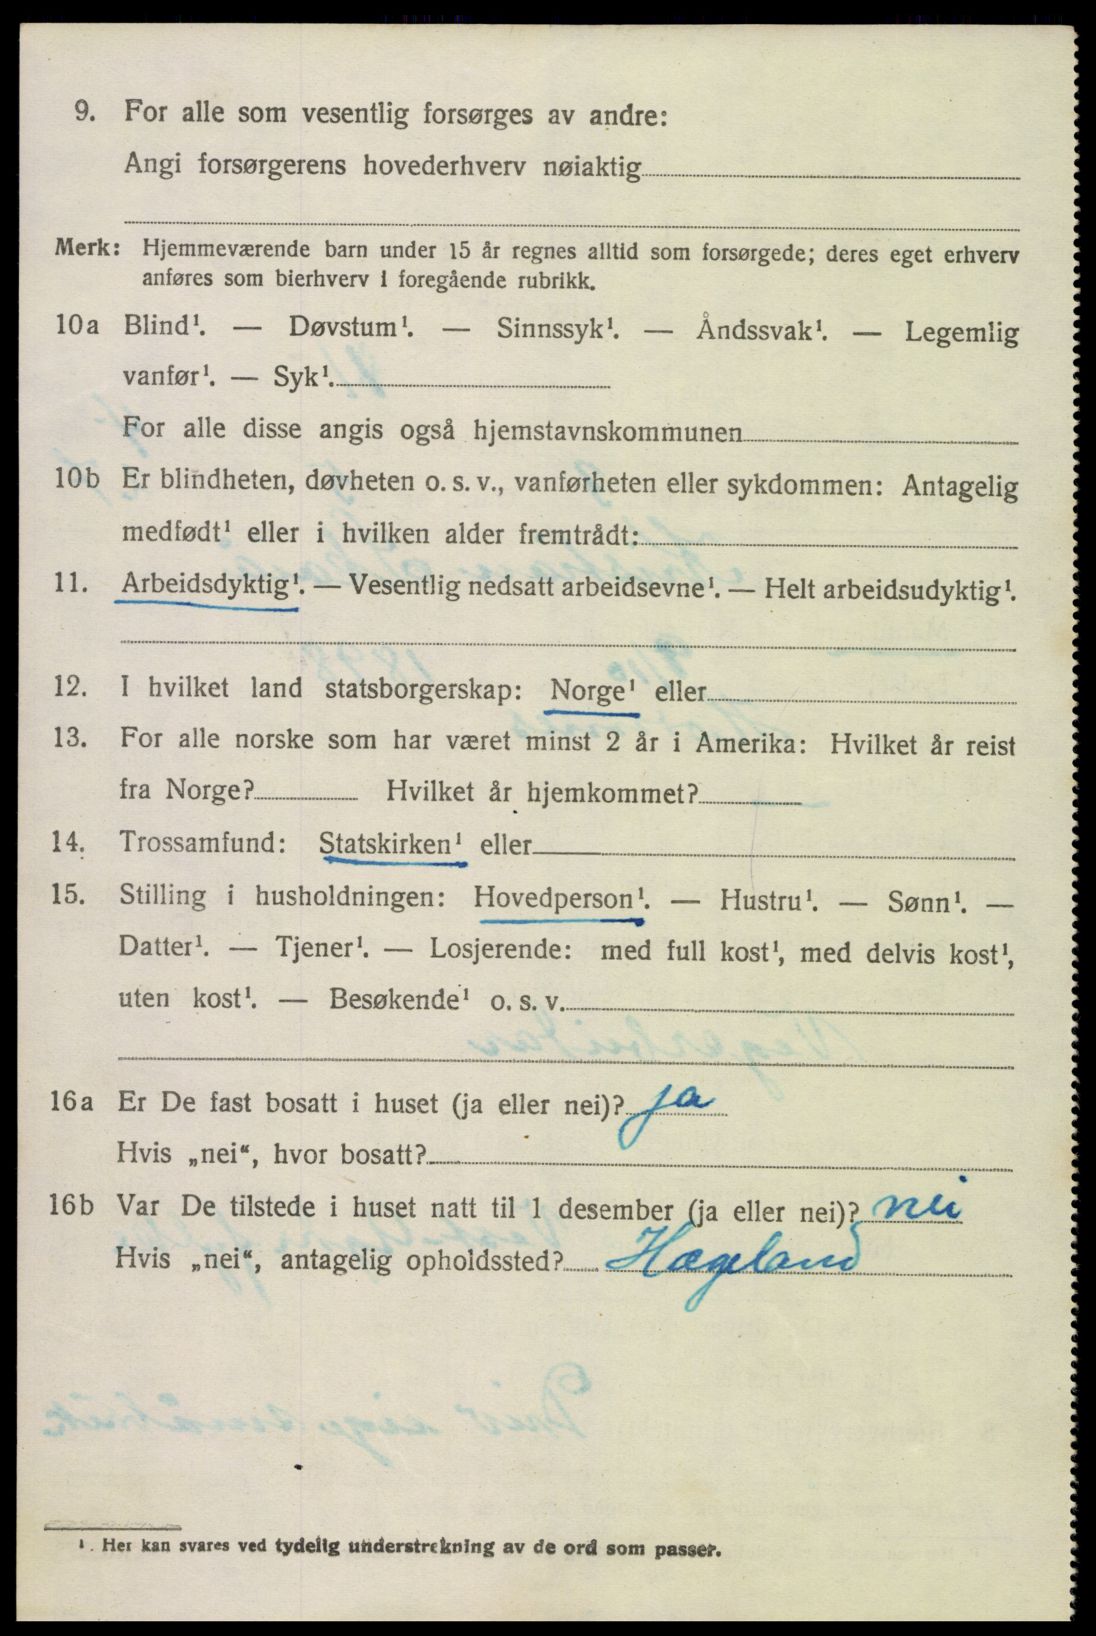 9. For alle som vesentlig forsørges av andre:
Angi forsørgerens hovederhverv nøiaktig
Merk: Hjemmeværende barn under 15 år regnes alltid som forsørgede; deres eget erhverv
anføres som bierhverv i foregående rubrikk.
10a Blind¹. — Døvstum¹. — Sinnssyk¹. — Åndssvak¹. — Legemlig
vanfør¹. — Syk¹.
For alle disse angis også hjemstavnskommunen
10b Er blindheten, døvheten o. s. v., vanførheten eller sykdommen: Antagelig
medfødt¹ eller i hvilken alder fremtrådt:
11. Arbeidsdyktig¹. — Vesentlig nedsatt arbeidsevne¹. — Helt arbeidsudyktig¹.
12. I hvilket land statsborgerskap: Norge¹ eller
13. For alle norske som har været minst 2 år i Amerika: Hvilket år reist
fra Norge? Hvilket år hjemkommet?
14. Trossamfund: Statskirken¹ eller
15. Stilling i husholdningen: Hovedperson¹. — Hustru¹. — Sønn¹. —
Datter¹. — Tjener¹. — Losjerende: med full kost¹, med delvis kost¹,
uten kost¹. — Besøkende¹ o. s. v.
16a Er De fast bosatt i huset (ja eller nei)? ja
Hvis „nei“, hvor bosatt?
16b Var De tilstede i huset natt til 1 desember (ja eller nei)? nei
Hvis „nei“, antagelig opholdssted? Hægeland
¹. Her kan svares ved tydelig understrekning av de ord som passer.